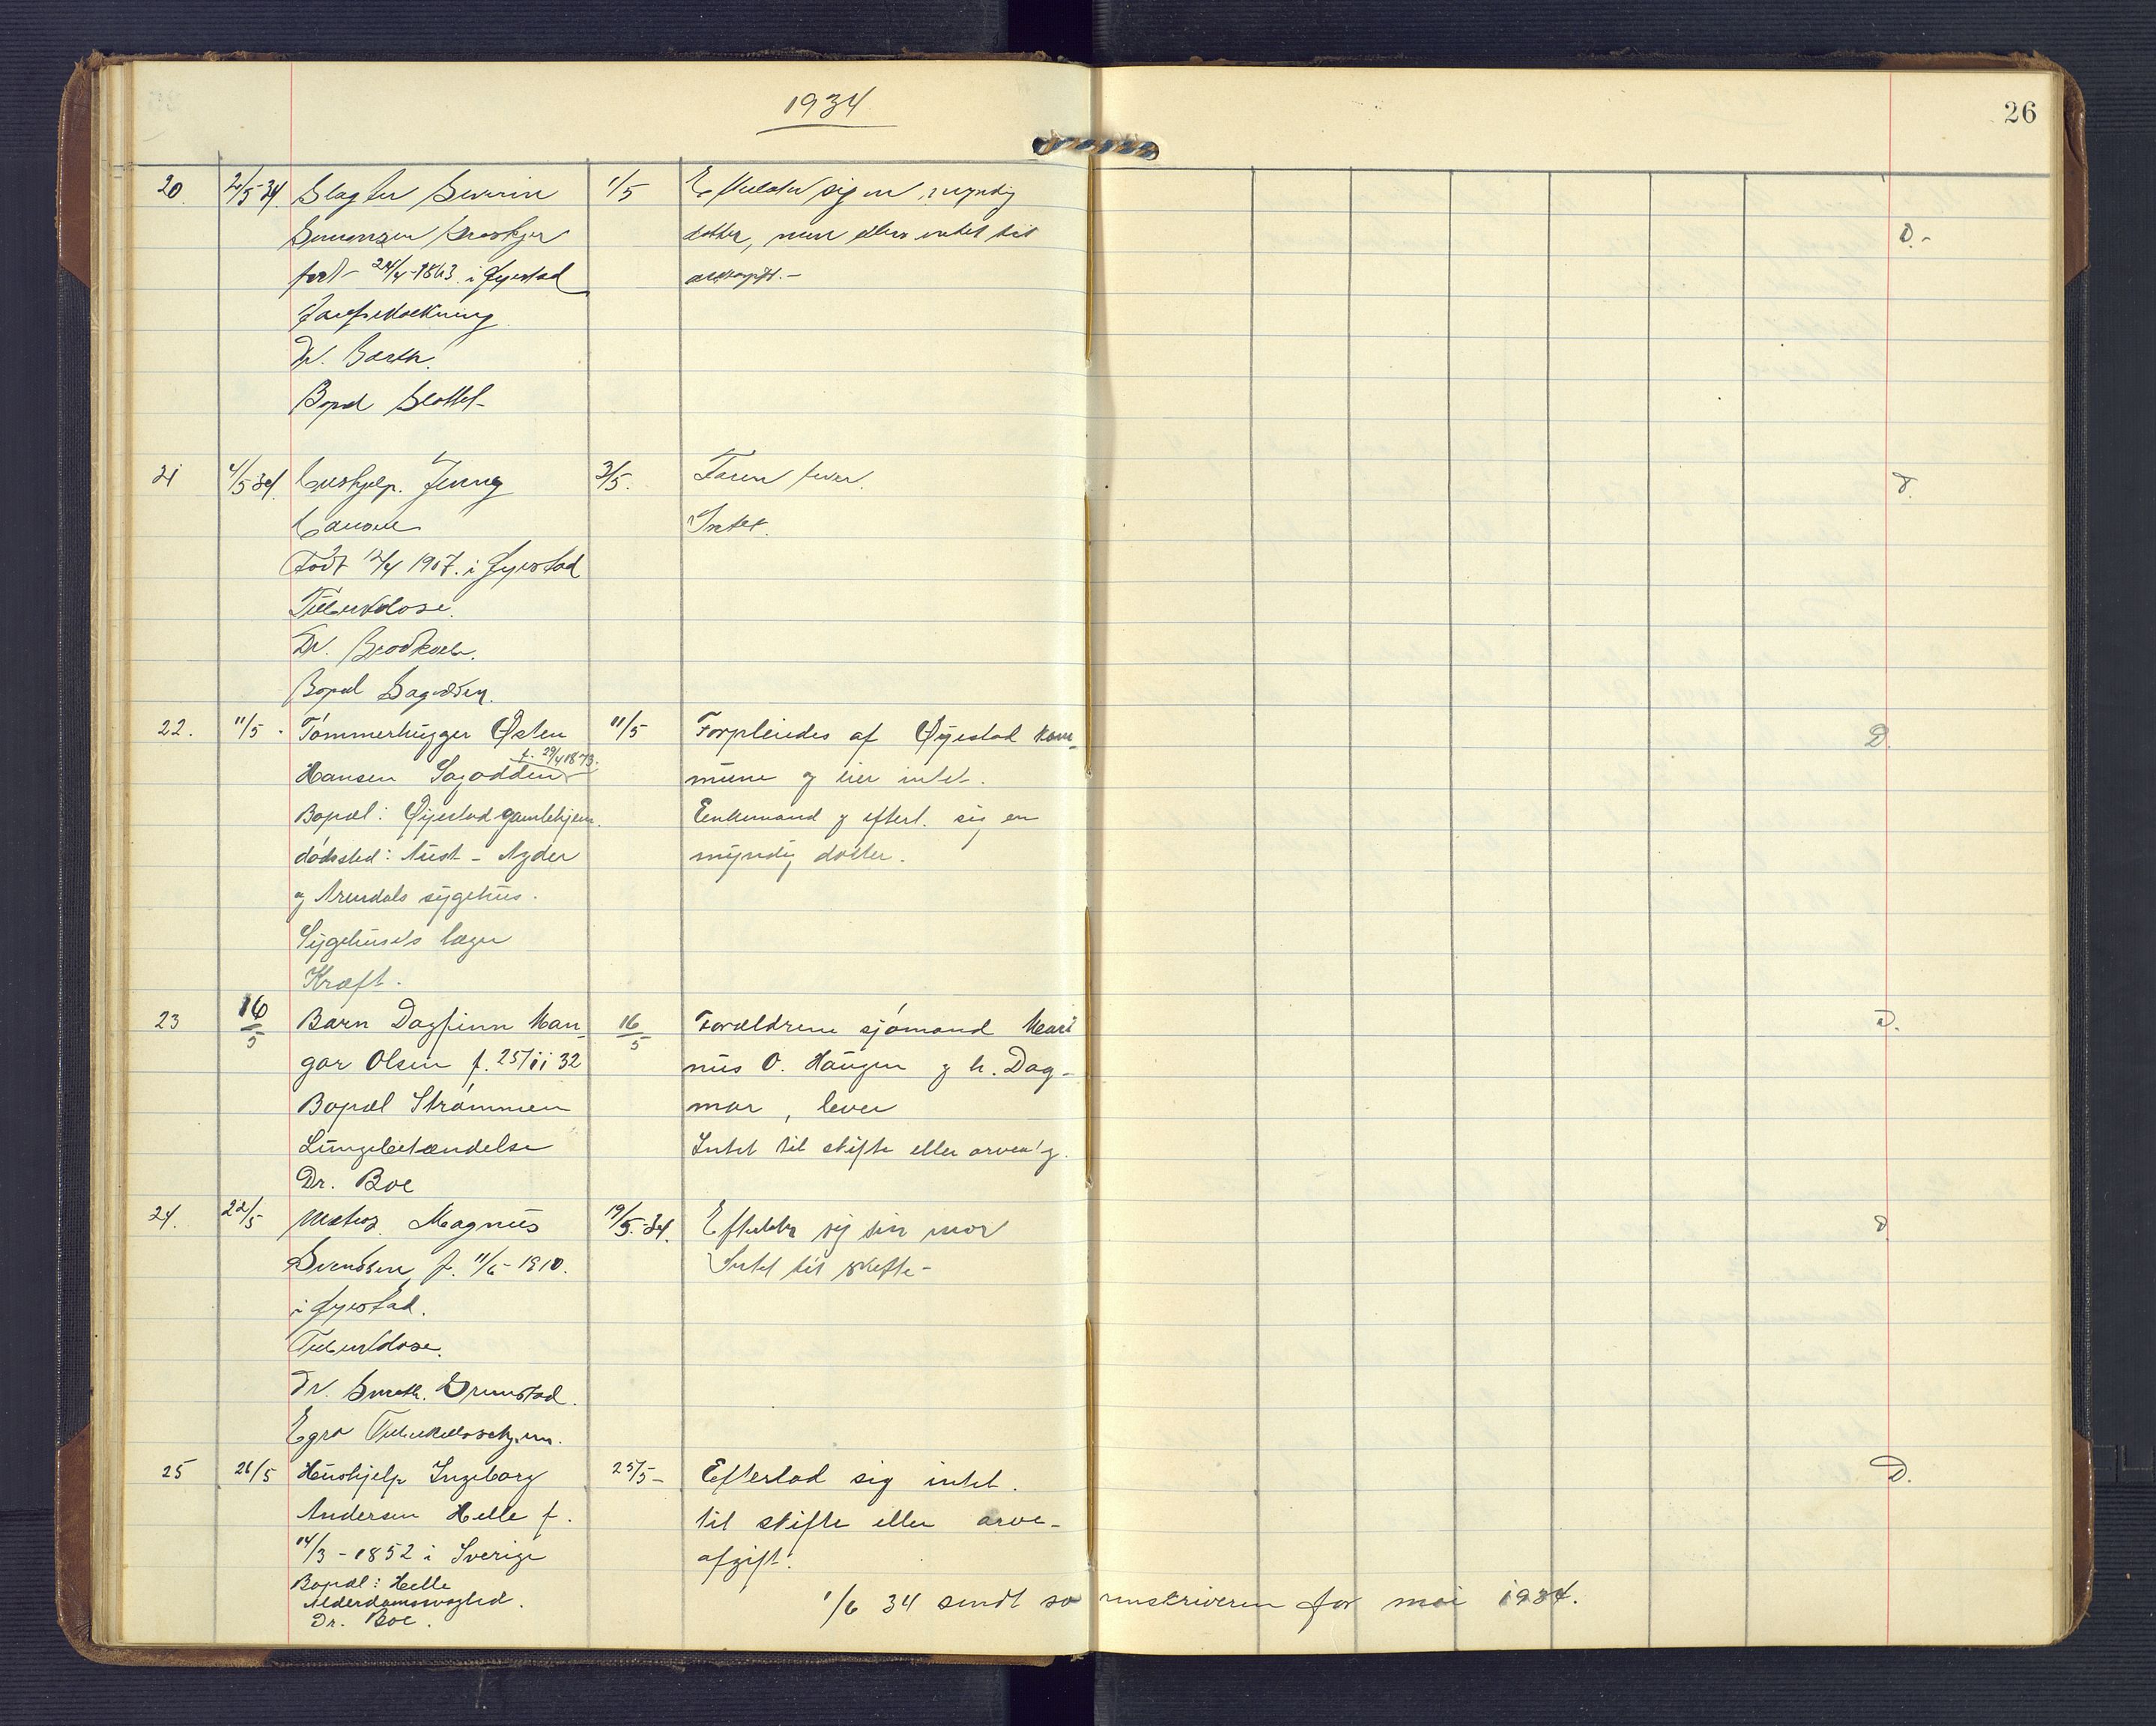 1934
26
20. 2/5-34 Slagter Severin 1/5 Efterlater sig en myndig
datter, men ellers intet til D.-
født 24/4-1863 i Øyestad
Dr. Barth.
Bopæl Slottet-
21 4/5 34. Hushjelp. Jenny 3/5. Faren lever. D.
Intet.
Født 12/4 1907. i Øyestad
Tuberkulose.
Dr.
Bopæl Sagodden.
22. 11/5 - Tømmerhugger Østen 11/5 Forpleiedes af Øyestad kom-
f. 29/4 1873.
Hansen Sagodden mune og eier intet. D.
Bopæl: Øyestad gamlehjem. Enkemand og efterl. sig en
dødssted: Aust-Agder myndig datter.
og Arendals sygehus.
Sygehusets læge
Kræft.
23 16/5 Barn Dagfinn Han- 16/5 Foreldrene sjømand Mari D.
gar Olsen f. 25/11 32 nus O. Haugen og h. Dag-
Bopæl Strømmen mar, lever
Lungebetændelse Intet til skifte eller arvea'g.
Dr. Boe
24. 22/5 Matros Magnus 19/5-34. Efterlater sig sin mor D
Svendsen f. 11/6-1910. Intet til skifte-
i Øyestad.
Tuberkulose.
Dr. Smith. Grimstad.
Egra Tuberkulosehjem.
25 26/5 Hushjelp Ingeborg 25/5- Efterlod sig intet. D.
Andersen Helle f. til skifte eller arve-
14/3-1852 i Sverige afgift.
Bopæl: Helle
Alderdomsvogted.
Dr. Boe.
1/6 34 sendt sorenskriveren for mai 1934.